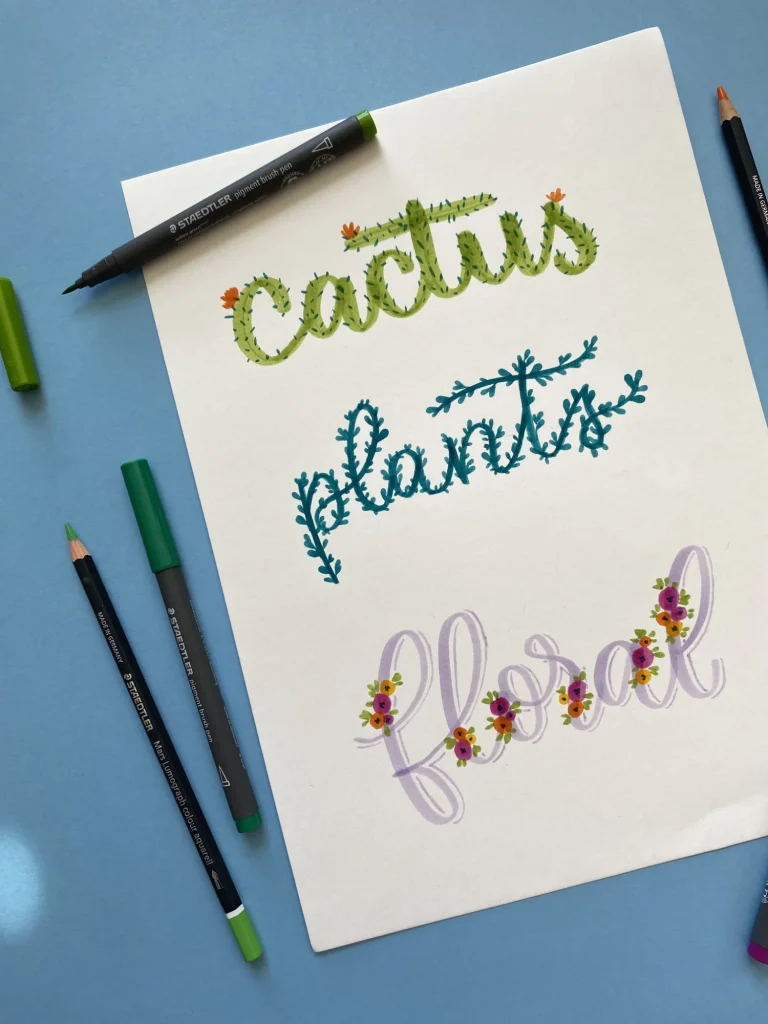 STAEDTLER pigment brush pen
MADE IN GERMANY
cactus
plants
floral
MADE IN GERMANY
STAEDTLER pigment brush pen
STAEDTLER
Mars Lumograph colour aquarell